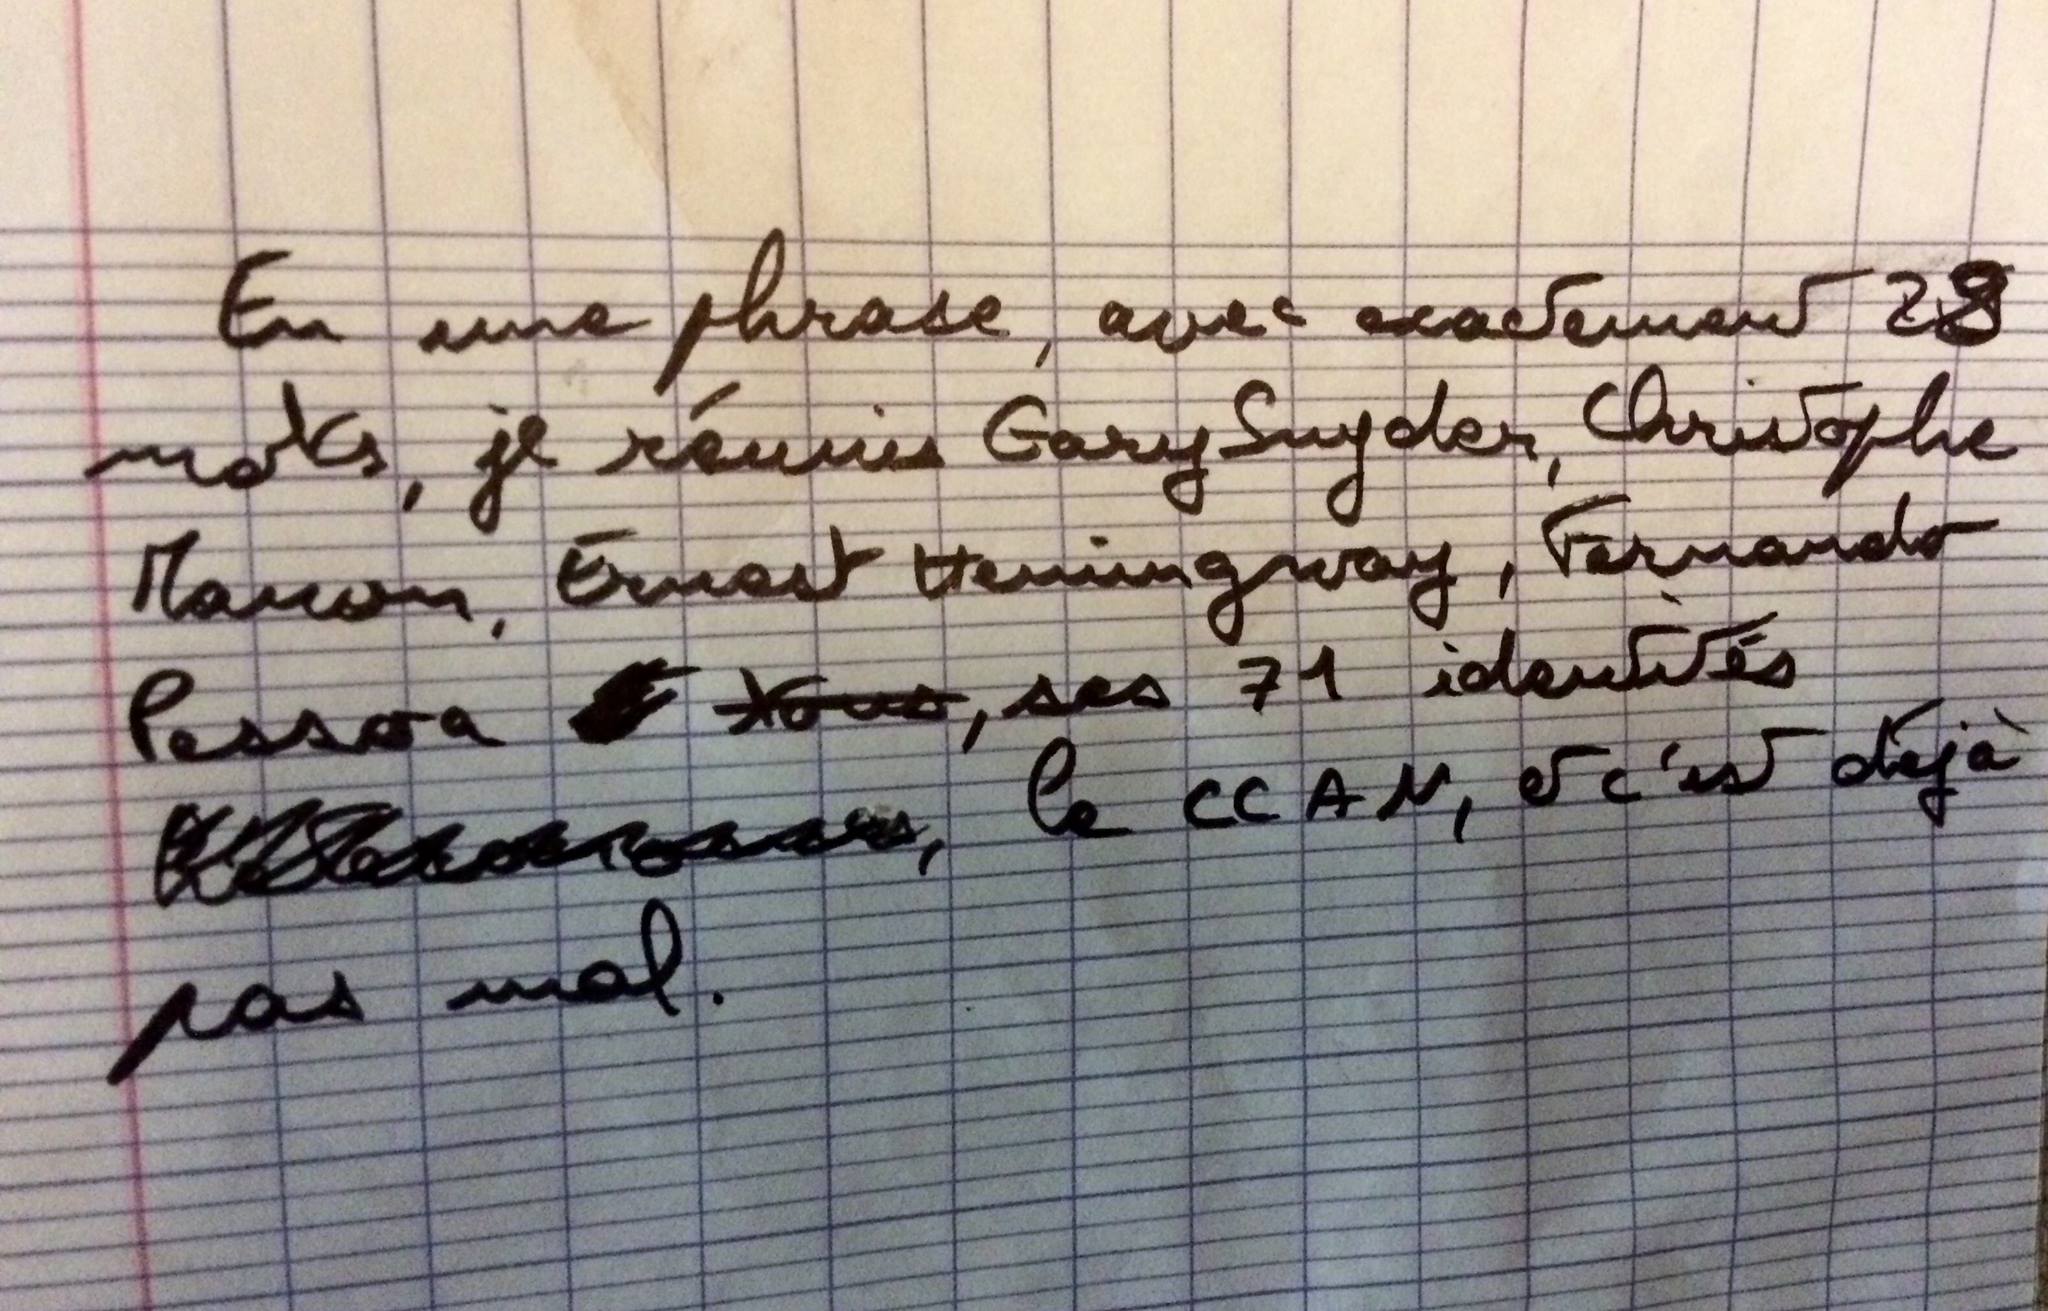 En une phrase, avec exactement 28
mots, je réunis Gary Snyder, Christophe
Manon, Ernest Hemingway, Fernando
Pessoa tous, ses 71 identités
, le CCAN, et c'est déjà
pas mal.